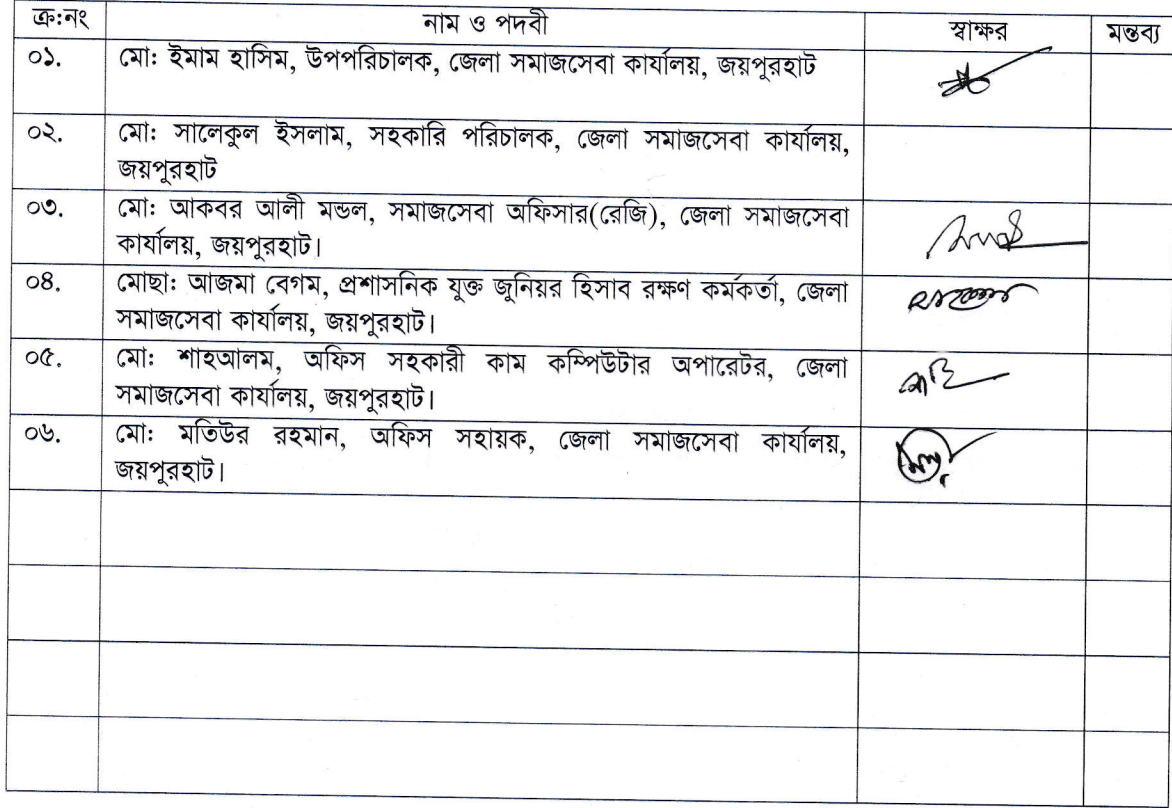 ক্র:নং নাম ও পদবী স্বাক্ষর মন্তব্য
০১. মো: ইমাম হাসিম, উপপরিচালক, জেলা সমাজসেবা কার্যালয়, জয়পুরহাট
০২. মো: সালেকুল ইসলাম, সহকারি পরিচালক, জেলা সমাজসেবা কার্যালয়,
জয়পুরহাট
০৩. মো: আকবর আলী মন্ডল, সমাজসেবা অফিসার(রেজি), জেলা সমাজসেবা
কার্যালয়, জয়পুরহাট।
০৪. মোছা: আজমা বেগম, প্রশাসনিক যুক্ত জুনিয়র হিসাব রক্ষণ কর্মকর্তা, জেলা
সমাজসেবা কার্যালয়, জয়পুরহাট।
০৫. মো: শাহআলম, অফিস সহকারী কাম কম্পিউটার অপারেটর, জেলা
সমাজসেবা কার্যালয়, জয়পুরহাট।
০৬. মো: মতিউর রহমান, অফিস সহায়ক, জেলা সমাজসেবা কার্যালয়,
জয়পুরহাট।